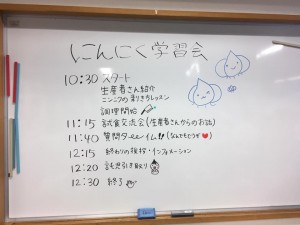 にんにく学習会
10:30 スタート
生産者さん紹介
ニンニクの芽きりレッスン
調理開始
11:15 試食交流会(生産者さんからのお話)
11:40 質問タイム!!(なんでもどうぞ♥)
12:15 終わりの挨拶・インフォメーション
12:20 託児引き取り
12:30 終了